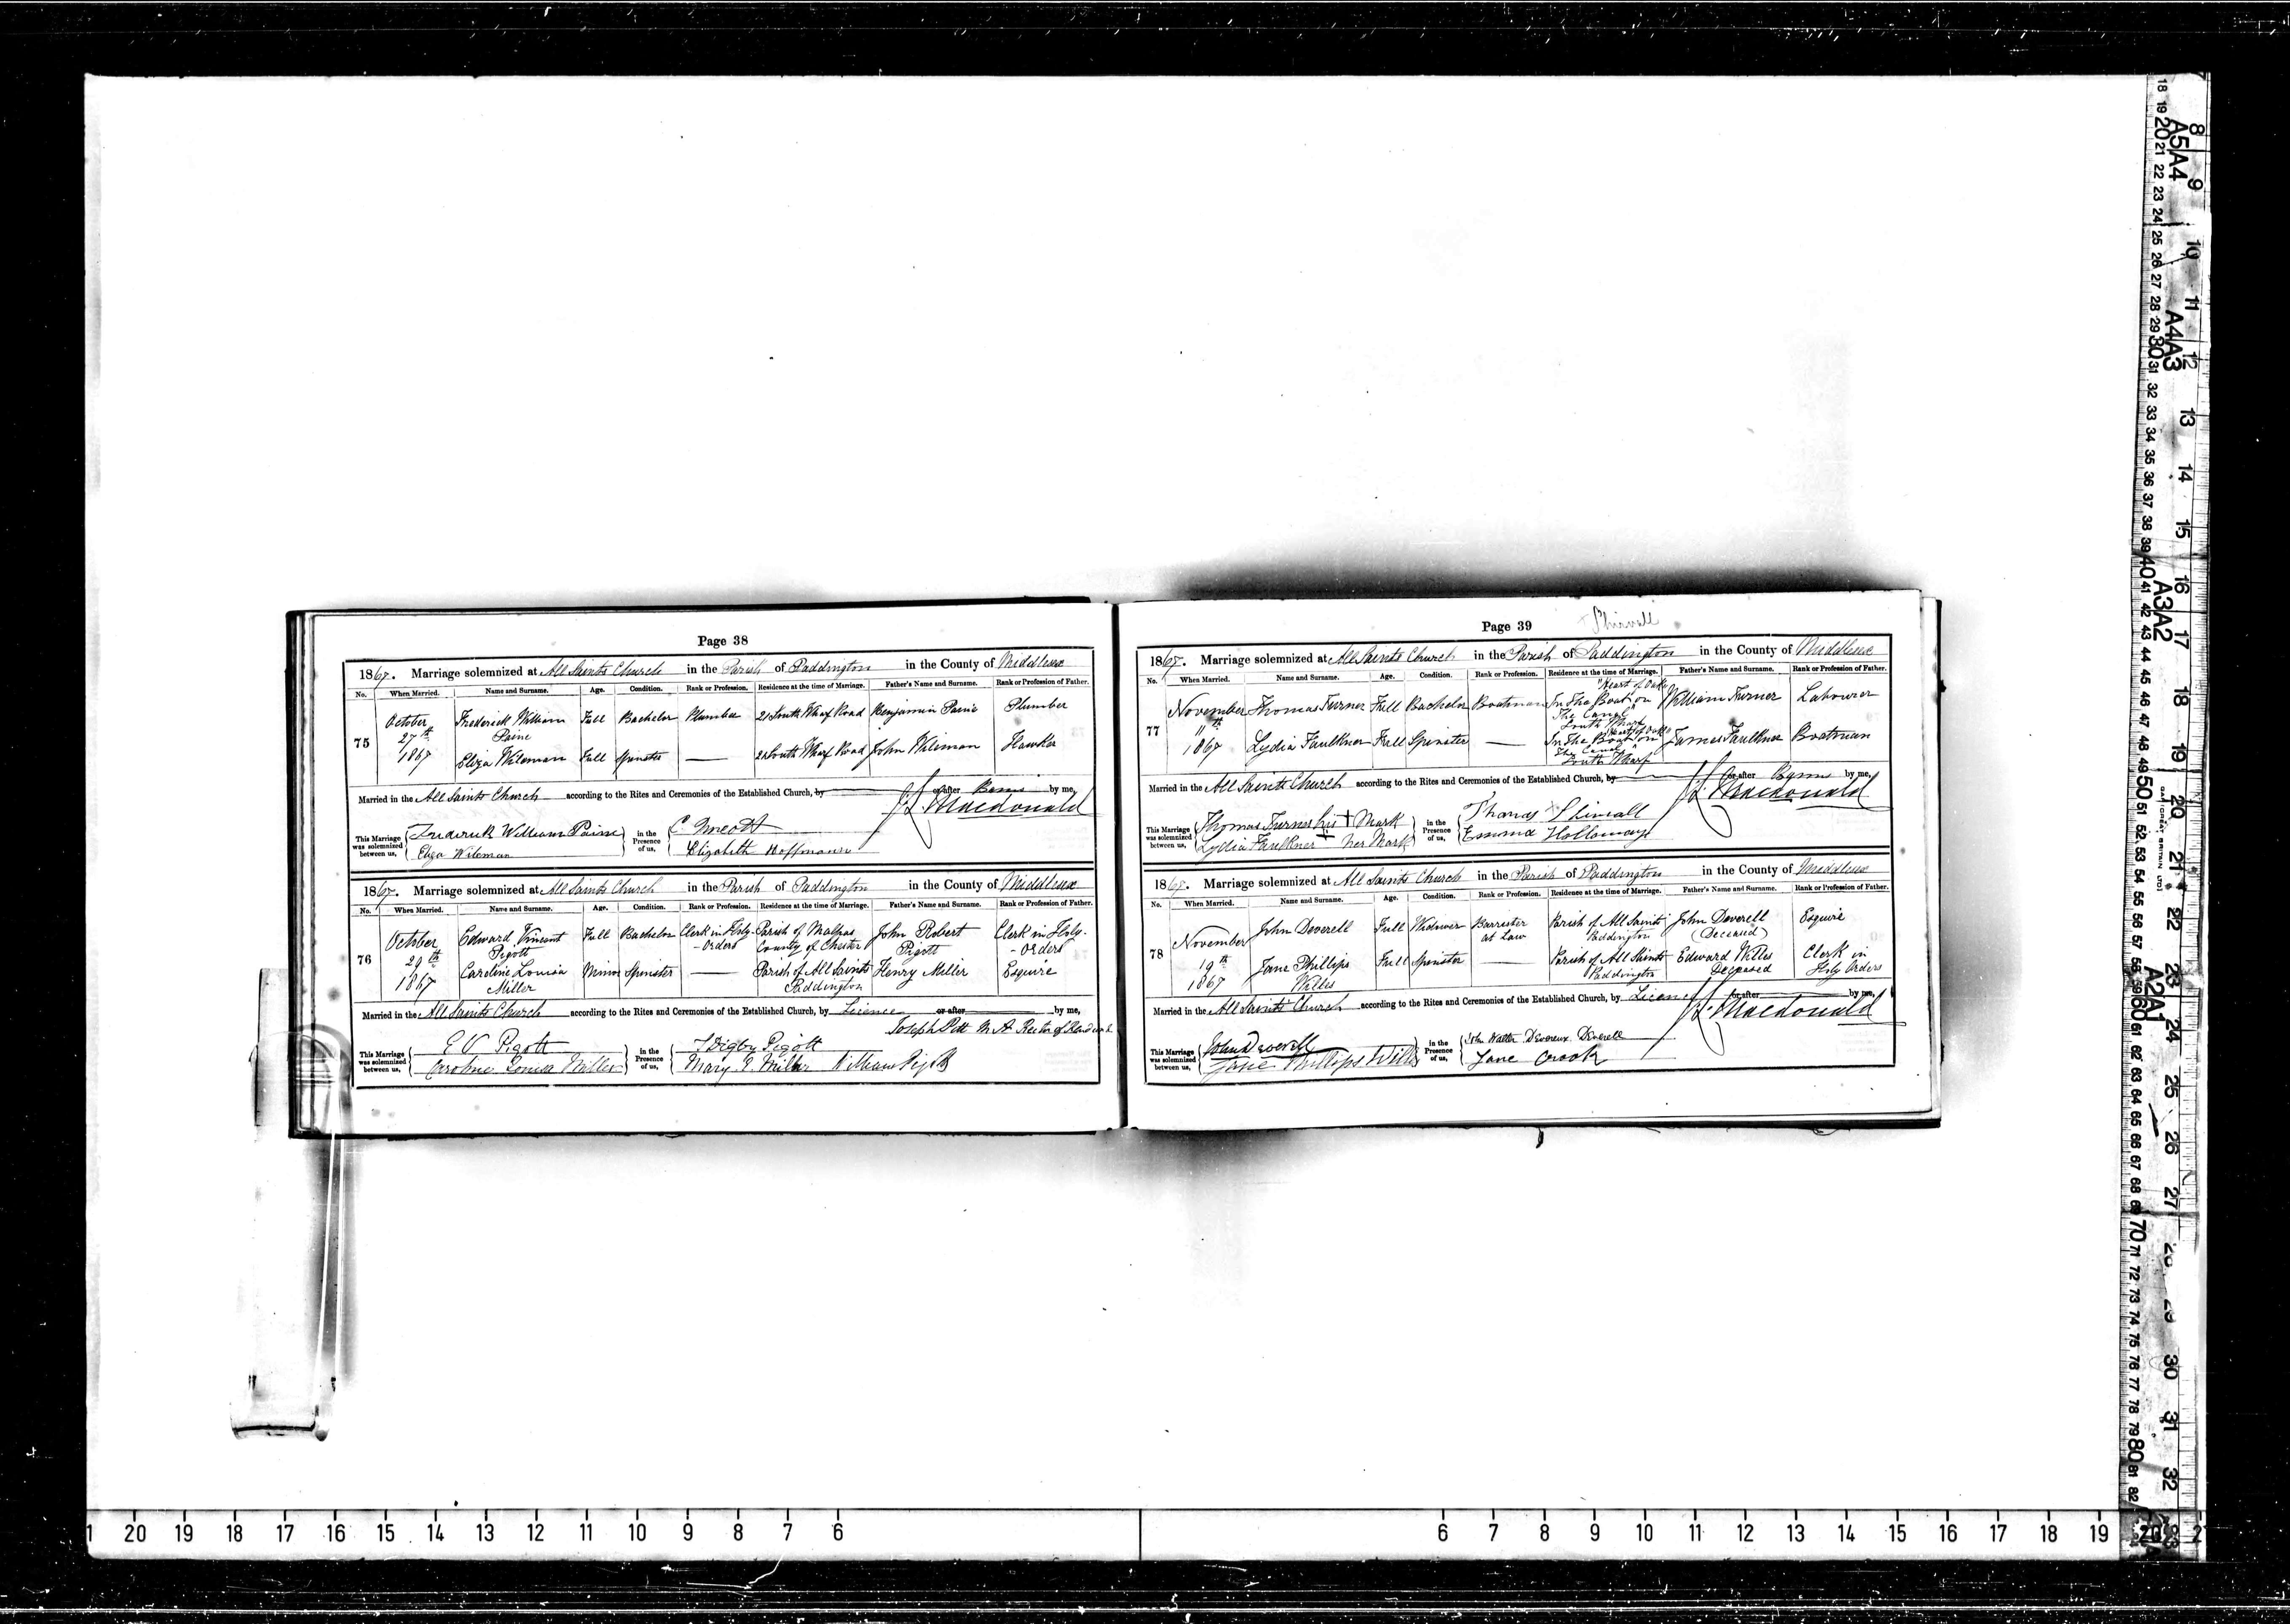 Page 38
1867. Marriage solemnized at All Saints Church in the Parish of Paddington in the County of Middlesex
No. When Married. Name and Surname. Age. Condition. Rank or Profession. Residence at the time of Marriage. Father's Name and Surname. Rank or Profession of Father.
75 October 27th 1867 Frederick William Paine Full Bachelor Plumber 21 South Wharf Road Benjamin Paine Plumber
Eliza Wileman Full Spinster — 21 South Wharf Road John Wileman Hawker
Married in the All Saints Church according to the Rites and Ceremonies of the Established Church, by or after Banns by me,
Macdonald
This Marriage was solemnized between us, Frederick William Paine in the Presence of us,
Eliza Wileman Elizabeth Hoffmann
1867. Marriage solemnized at All Saints Church in the Parish of Paddington in the County of Middlesex
No. When Married. Name and Surname. Age. Condition. Rank or Profession. Residence at the time of Marriage. Father's Name and Surname. Rank or Profession of Father.
76 October 29th 1867 Edward Vincent Pigott Full Bachelor Clerk in Holy-Orders Parish of Malpas County of Chester John Robert Pigott Clerk in Holy-Orders
Caroline Louisa Miller Minor Spinster — Parish of All Saints Paddington Henry Miller Esquire
Married in the All Saints Church according to the Rites and Ceremonies of the Established Church, by Licence or after by me,
Joseph Pitt M.A. Rector of
This Marriage was solemnized between us, E V Pigott in the Presence of us, Digby Pigott
Caroline Louisa Miller Mary E. Miller William Pigott
Page 39
1867. Marriage solemnized at All Saints Church in the Parish of Paddington in the County of Middlesex
No. When Married. Name and Surname. Age. Condition. Rank or Profession. Residence at the time of Marriage. Father's Name and Surname. Rank or Profession of Father.
77 November 11th 1867 Thomas Turner Full Bachelor Boatman In The Boat "Heart of Oak" on The Canal South Wharf William Turner Labourer
Lydia Faulkner Full Spinster — In The Boat "Heart of Oak" on The Canal South Wharf James Faulkner Boatman
Married in the All Saints Church according to the Rites and Ceremonies of the Established Church, by or after Banns by me,
Macdonald
This Marriage was solemnized between us, Thomas Turner his + Mark in the Presence of us, Thomas
Lydia Faulkner + her Mark Emma Holloway
1867. Marriage solemnized at All Saints Church in the Parish of Paddington in the County of Middlesex
No. When Married. Name and Surname. Age. Condition. Rank or Profession. Residence at the time of Marriage. Father's Name and Surname. Rank or Profession of Father.
78 November 19th 1867 John Deverell Full Widower Barrister at Law Parish of All Saints Paddington John Deverell (Deceased) Esquire
Jane Phillips Willes Full Spinster — Parish of All Saints Paddington Edward Willes Deceased Clerk in Holy Orders
Married in the All Saints Church according to the Rites and Ceremonies of the Established Church, by Licence or after by me,
Macdonald
This Marriage was solemnized between us, John Deverell in the Presence of us, John Walter Devereux Deverell
Jane Phillips Willes Jane Crook